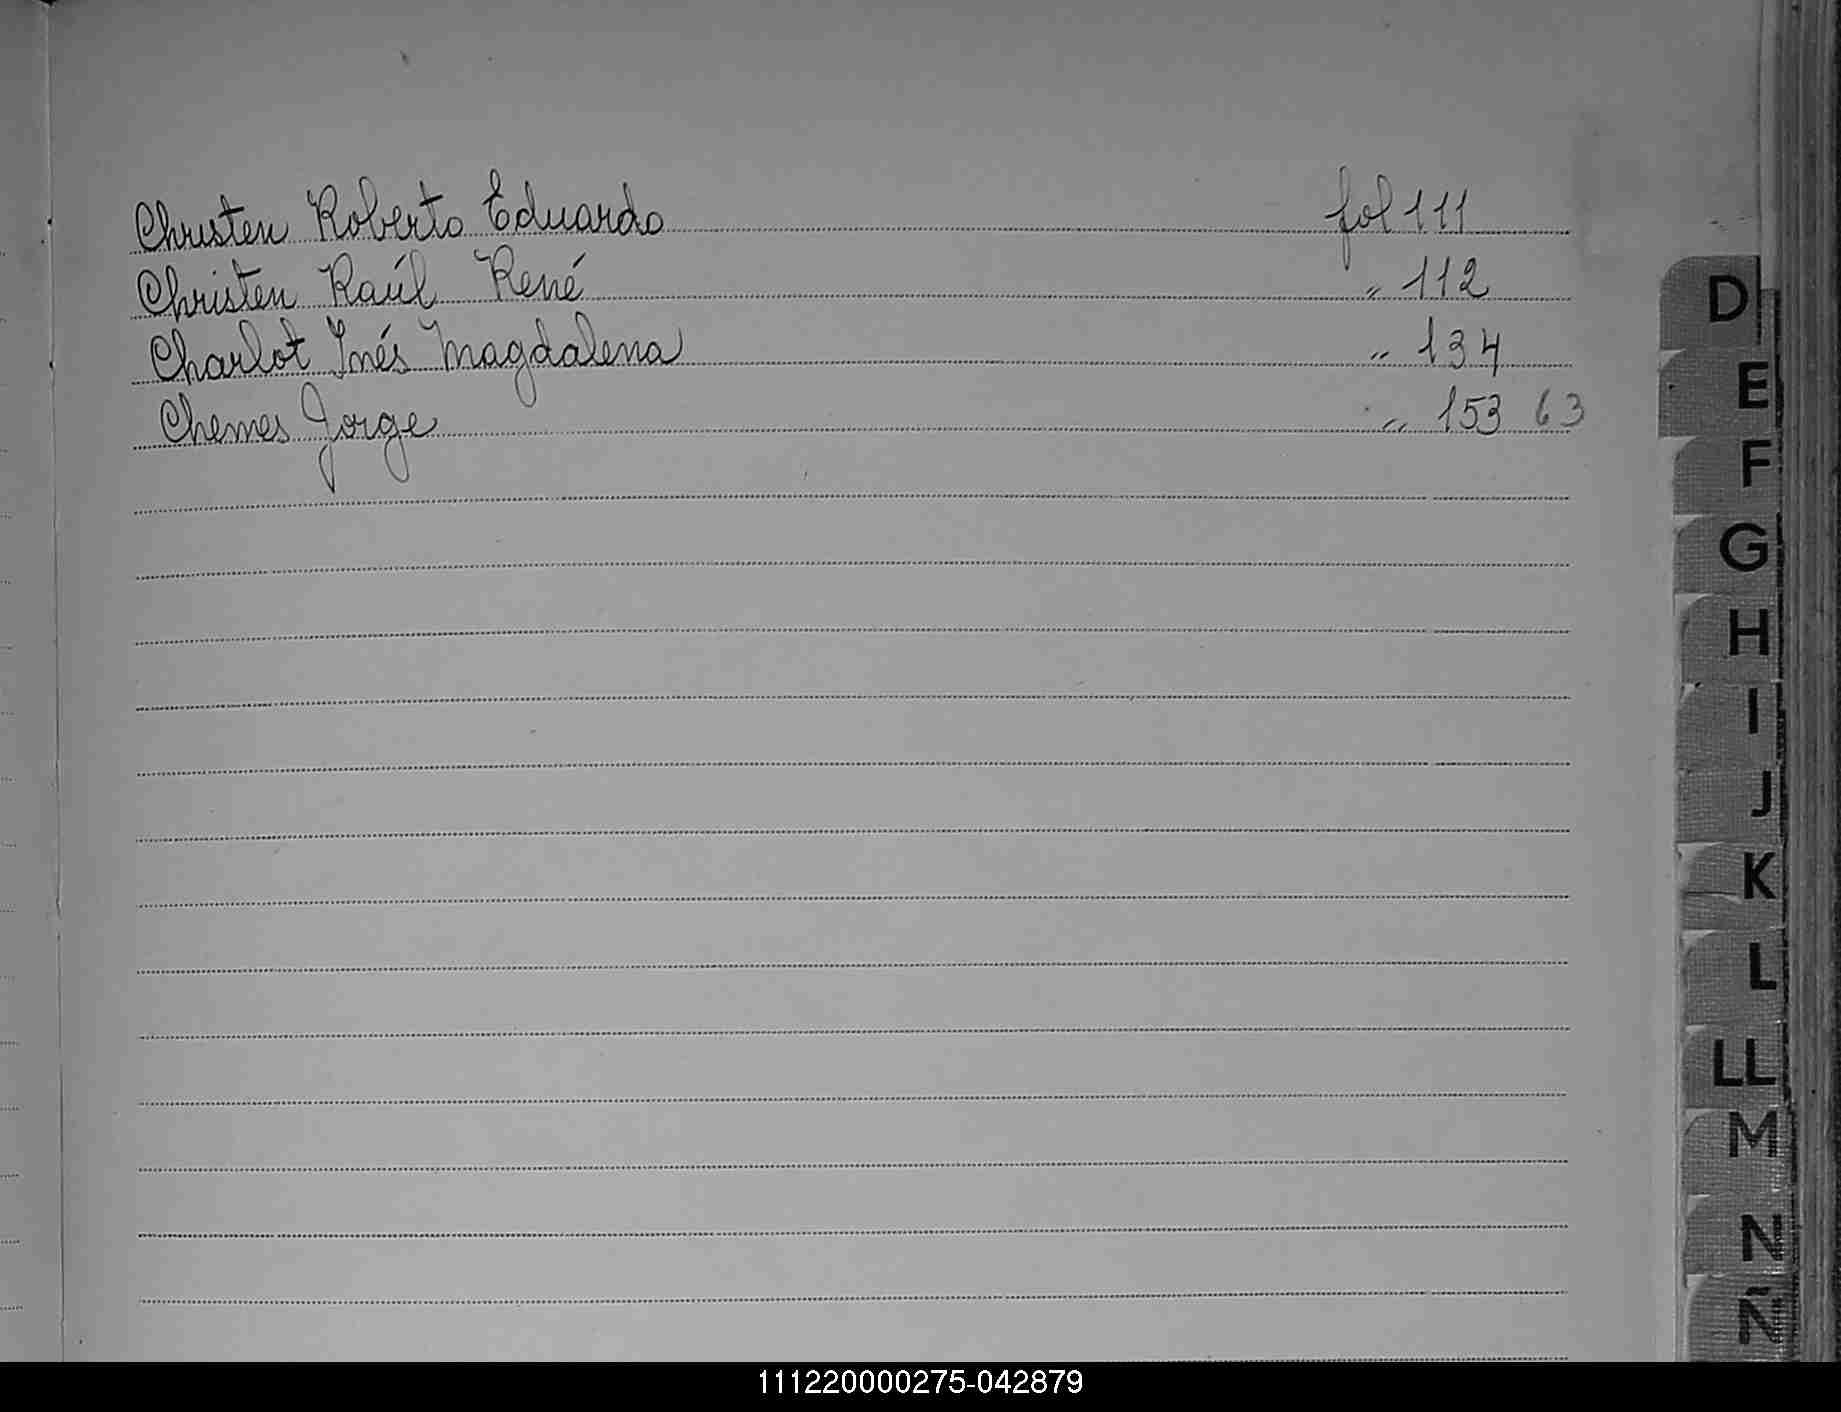 Christen Roberto Eduardo fol 111
Christen Raúl René " 112
Charlot Inés Magdalena " 134
Chemes Jorge " 153 63
D
E
F
G
H
I
J
K
L
LL
M
N
Ñ
111220000275-042879